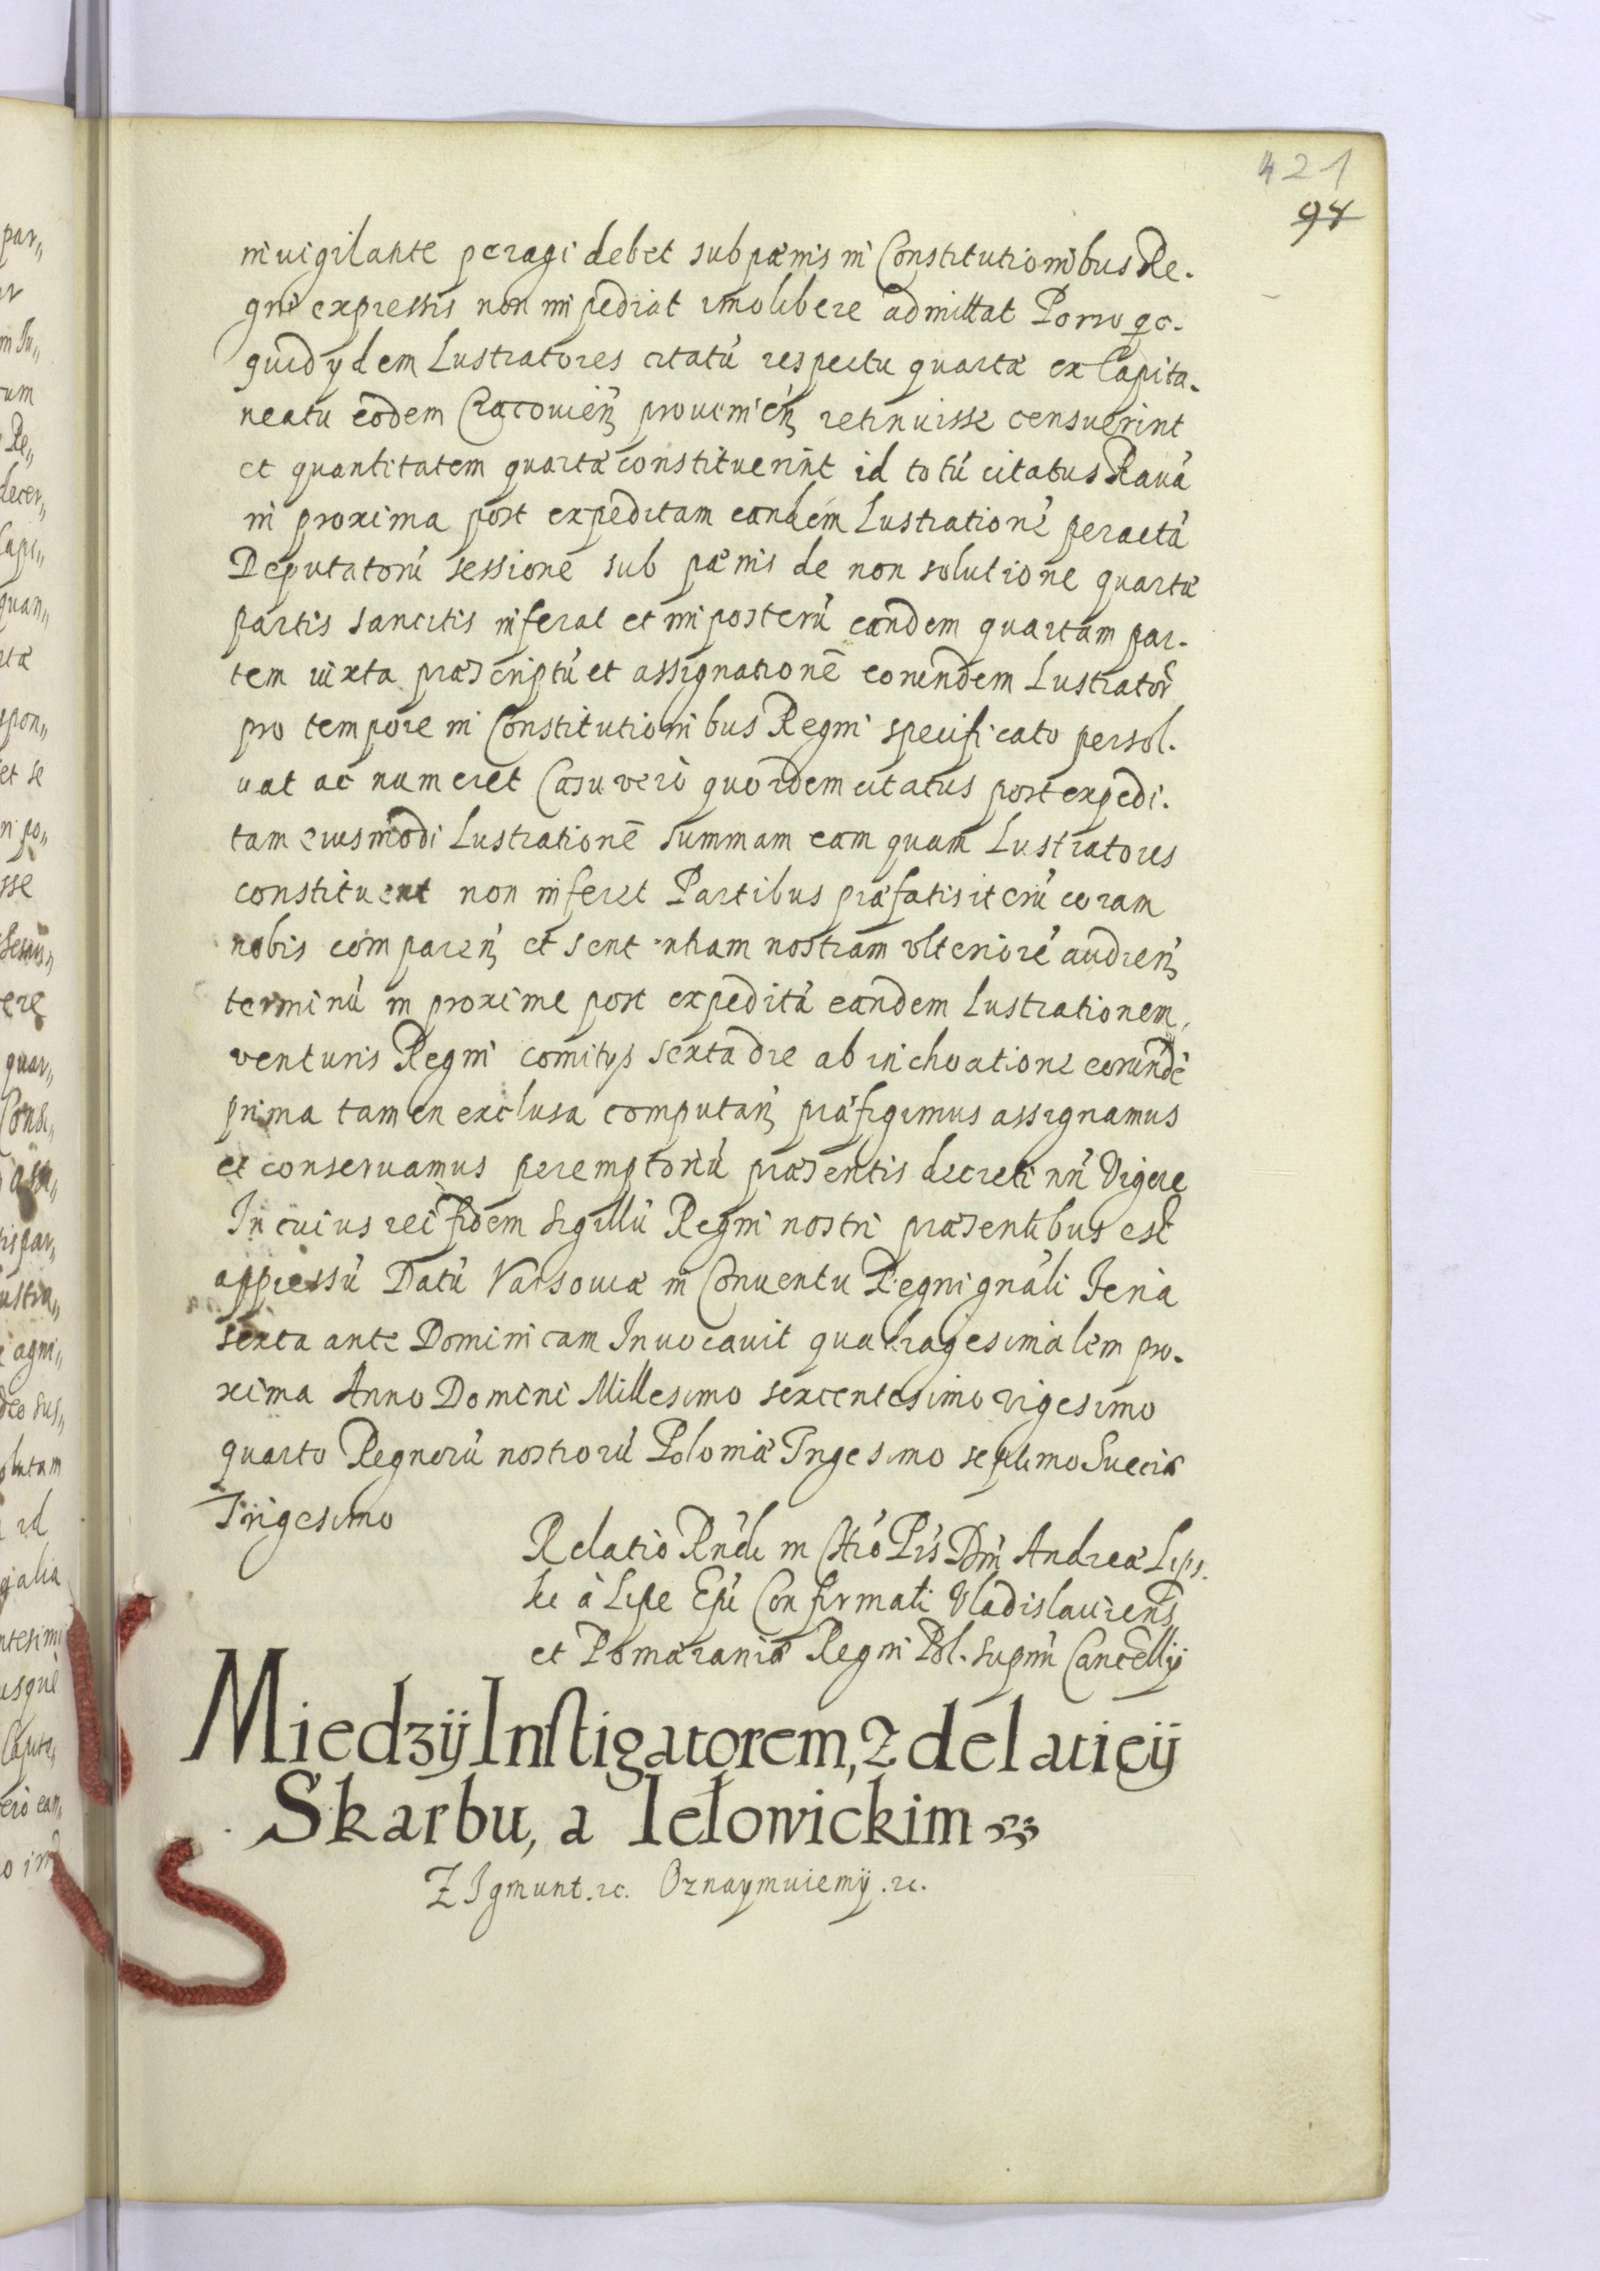 421
98
inuigilante peragi debet sub pænis in Constitutionibus Re-
gni expressis non impediat imo libere admittat Porro qc-
quid ydem Lustratores citatú respectu quartæ ex Capita-
neatu eodem Cracouień prouenień retinuisse censuerint
et quantitatem quartæ constituerint id totú citatus Rauá
in proxima post expeditam eandem Lustrationē peractá
Deputatorú sessione sub pænis de non solutione quartæ
partis sancitis inferat et in posterú eandem quartam par-
tem iuxta præscriptú et assignationē eorundem Lustratōr
pro tempore in Constitutionibus Regni specificato persol-
uat ac numeret Casu verò quo idem citatus post expedi-
tam eiusmodi Lustrationē summam eam quam Lustratores
constituent non inferet Partibus præfatis iterú coram
nobis compareń et sententiam nostram vlteriorē audień
terminú in proxime post expeditá eandem Lustrationem,
venturis Regni comitys sexta die ab inchoatione eorundē
prima tamen exclusa computań præfigimus assignamus
et conseruamus peremptoriú præsentis decreti nri Vigore
In cuius rei fidem Sigillú Regni nostri præsentibus est
appressú Datú Varsouiæ in Conuentu Regni gnáli Feria
sexta ante Dominicam Inuocauit quadragesimalem pro-
xima Anno Domini Millesimo sexcentesimo vigesimo
quarto Regnorú nostrorú Poloniæ Trigesimo septimo Sueciæ
Trigesimo
Relatio Rńdi in Chró Prís Dńi Andreæ Lips-
ki à Lipe Epí Confirmati Vladislauiens
et Pomaraniæ Regni Pol. supmi Cancellij
Miedzÿ Instigatorem, z delatieÿ
Skarbu, a Iełowickim
ZIgmunt .rc. Oznaymuiemÿ .rc.